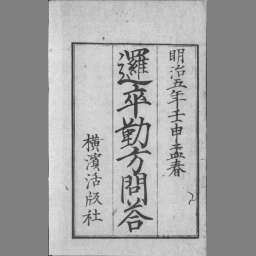 明治五年壬申孟春
邏卒勤方問答
横濱活版社